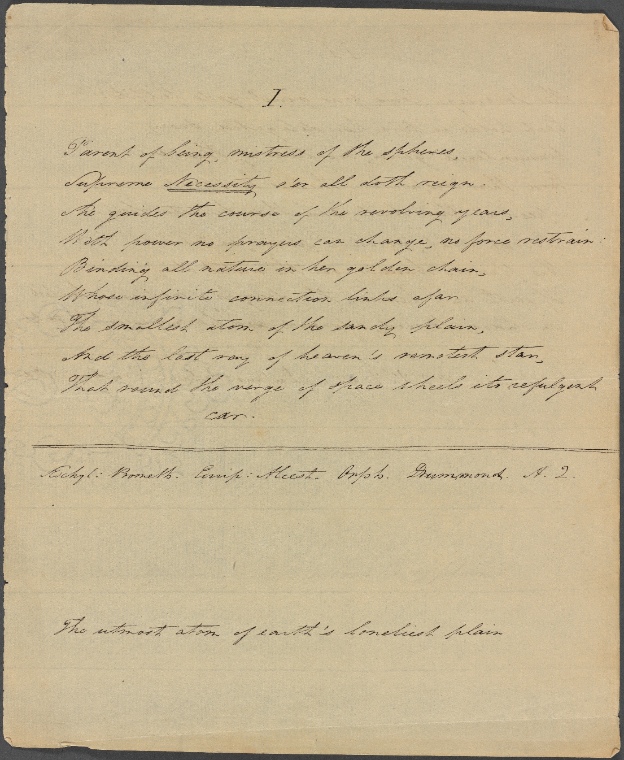 I.
Parent of being, mistress of the spheres,
Supreme Necessity o'er all doth reign.
She guides the course of the revolving years,
With power no prayers can change, no force restrain:
Binding all nature in her golden chain,
Whose infinite connection links afar
The smallest atom of the sandy plain,
And the last ray of heaven's remotest star,
That round the verge of space wheels its refulgent
car.
Æschyl: Prometh. Eurip: Alcest. Orph. Drummond. A. Q.
The utmost atom of earth's loneliest plain